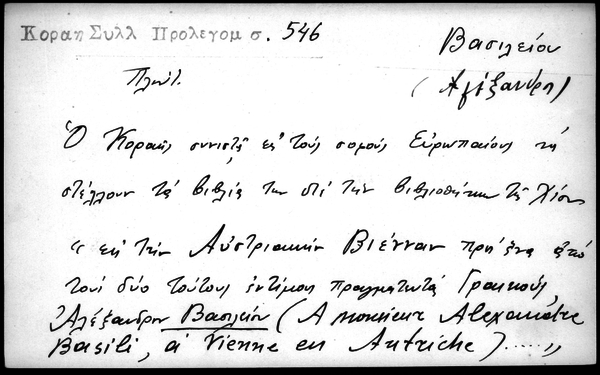 Κοραη Συλλ Προλεγομ σ. 546
Βασιλείου
Πλούτ.
(Αλέξανδρ)
Ὁ Κοραῆς συνιστᾷ εἰς τοὺς σοφοὺς Εὐρωπαίους νὰ
στέλλουν τὰ βιβλία των διὰ τὴν βιβλιοθήκην τῆς Χίου
“ εἰς τὴν Αὐστριακὴν Βιένναν πρὸς ἕνα ἀπὸ
τοὺς δύο τούτους ἐντίμους πραγματευτὰς Γραικούς,
Ἀλέξανδρον Βασιλείου (A monsieur Alexandre
Basili, à Vienne en Autriche) ....,,